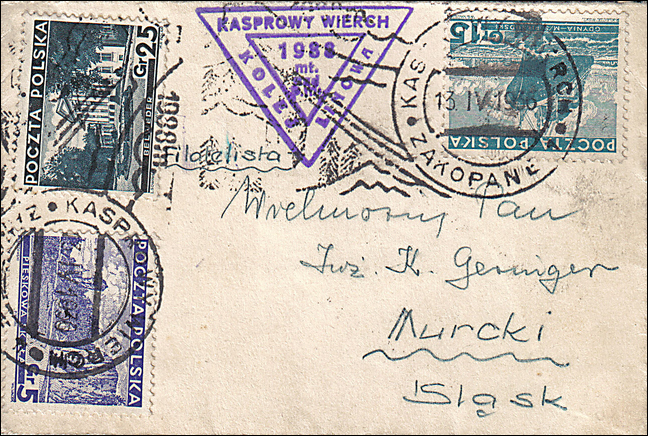 POCZTA POLSKA
Gr 25
BELWEDER
KASPROWY WIERCH
1988
mt.
KOLEJ LINOWA
Gr 15
POCZTA POLSKA
13 IV 1936
ZAKOPANE
Filatelista
KASPROWY WIERCH
PIESKOWA SKAŁA
POCZTA POLSKA
Gr 5
Wielmożny Pan
Inż. K. Geringer
Murcki
Śląsk